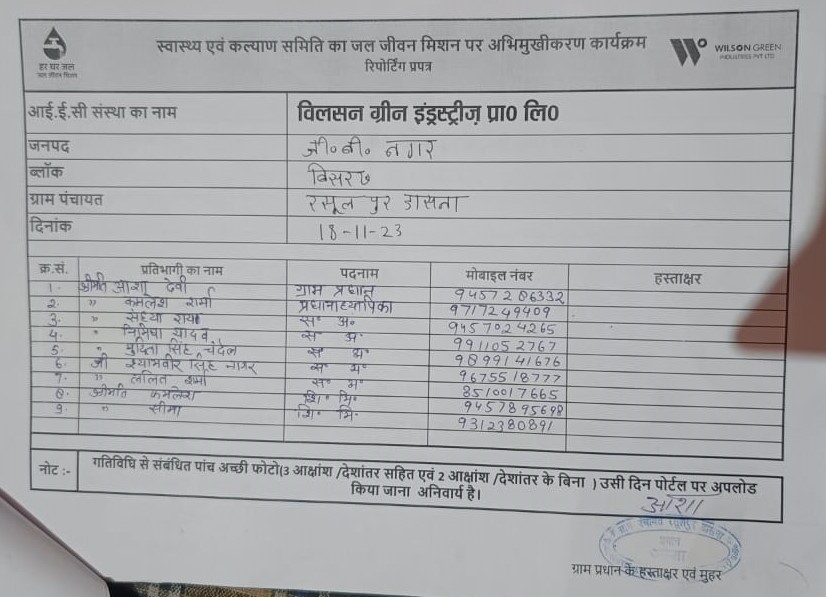 हर घर जल
जल जीवन मिशन
स्वास्थ्य एवं कल्याण समिति का जल जीवन मिशन पर अभिमुखीकरण कार्यक्रम
रिपोर्टिंग प्रपत्र
WILSON GREEN
INDUSTRIES PVT LTD
आई.ई.सी संस्था का नाम विलसन ग्रीन इंड्रस्ट्रीज़ प्रा0 लि0
जनपद जी० बी० नगर
ब्लॉक बिसरख
ग्राम पंचायत रसूल पुर डासना
दिनांक 18-11-23
क्र.सं. प्रतिभागी का नाम पदनाम मोबाइल नंबर हस्ताक्षर
1. श्रीमति आशा देवी ग्राम प्रधान 9457286332
2. " कमलेश शर्मा प्रधानाध्यापिका 9717249409
3. " संध्या स० अ० 9457024265
4. " निमिषा यादव स० अ० 9911052767
5. " मुदिता सिंह चंदेल स० अ० 9899141676
6. श्री श्यामवीर सिंह नागर स० अ० 9675518777
7. " ललित शर्मा स० अ० 8510017665
8. श्रीमति कमलेश शि० मि० 9457895698
9. " सीमा शि० मि० 9312380891
नोट :- गतिविधि से संबंधित पांच अच्छी फोटो(3 आक्षांश /देशांतर सहित एवं 2 आक्षांश /देशांतर के बिना ) उसी दिन पोर्टल पर अपलोड
किया जाना अनिवार्य है।
आशा
प्रधान
ग्राम प्रधान के हस्ताक्षर एवं मुहर